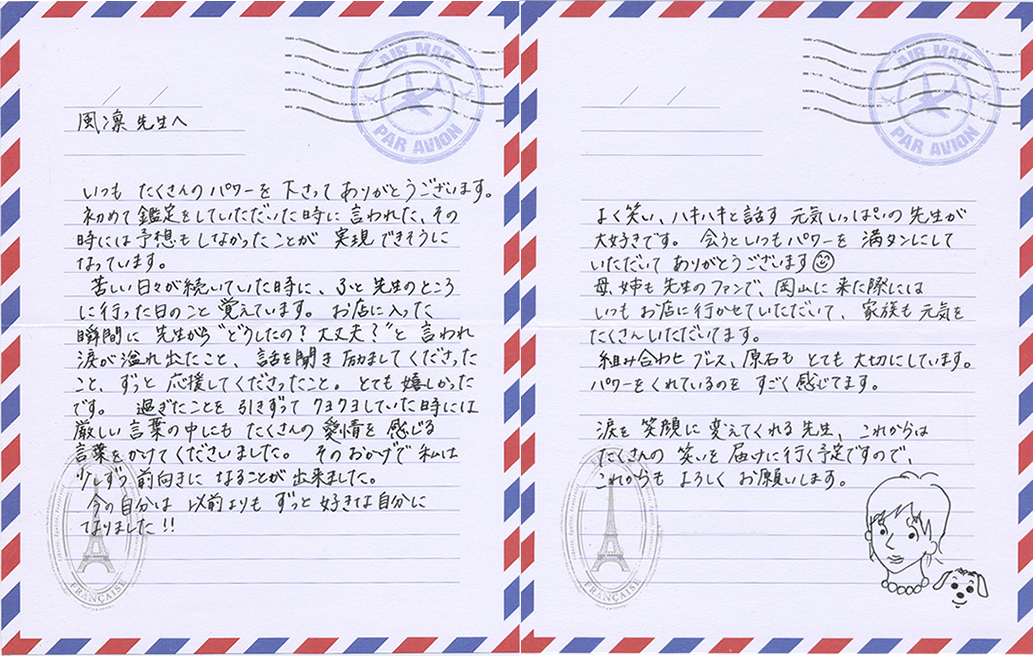 AIR MAIL
PAR AVION
風凛 先生へ
いつも たくさんの パワーを 下さって ありがとうございます。
初めて 鑑定をしていただいた時に 言われた、その
時には 予想もしなかったことが 実現できそうに
なっています。
苦しい日々が続いていた時に、ふと 先生のところ
に行った日のこと 覚えています。 お店に入った
瞬間に 先生から "どうしたの？大丈夫？"と 言われ
涙が溢れ出たこと、 話を聞き 励ましてくださった
こと、ずっと 応援してくださったこと。 とても 嬉しかった
です。 過ぎたことを 引きずって クヨクヨしていた時には
厳しい言葉の中にも たくさんの 愛情を 感じる
言葉をかけてくださいました。 そのおかげで 私は
少しずつ 前向きに なることが 出来ました。
今の自分は 以前よりも ずっと 好きな自分に
なりました!!
FRANÇAISE
AIR MAIL
PAR AVION
よく笑い、ハキハキと話す 元気いっぱいの 先生が
大好きです。 会うといつもパワーを 満タンにして
いただいて ありがとうございます
母、姉も 先生のファンで、岡山に 来た際には
いつも お店に行かせていただいて、家族も元気を
たくさんいただいてます。
組み合わせ ブレス、原石も とても 大切にしています。
パワーをくれているのを すごく 感じてます。
涙を 笑顔に 変えてくれる先生、これからは
たくさんの 笑いを 届けに行く予定ですので、
これからも よろしく お願いします。
FRANÇAISE